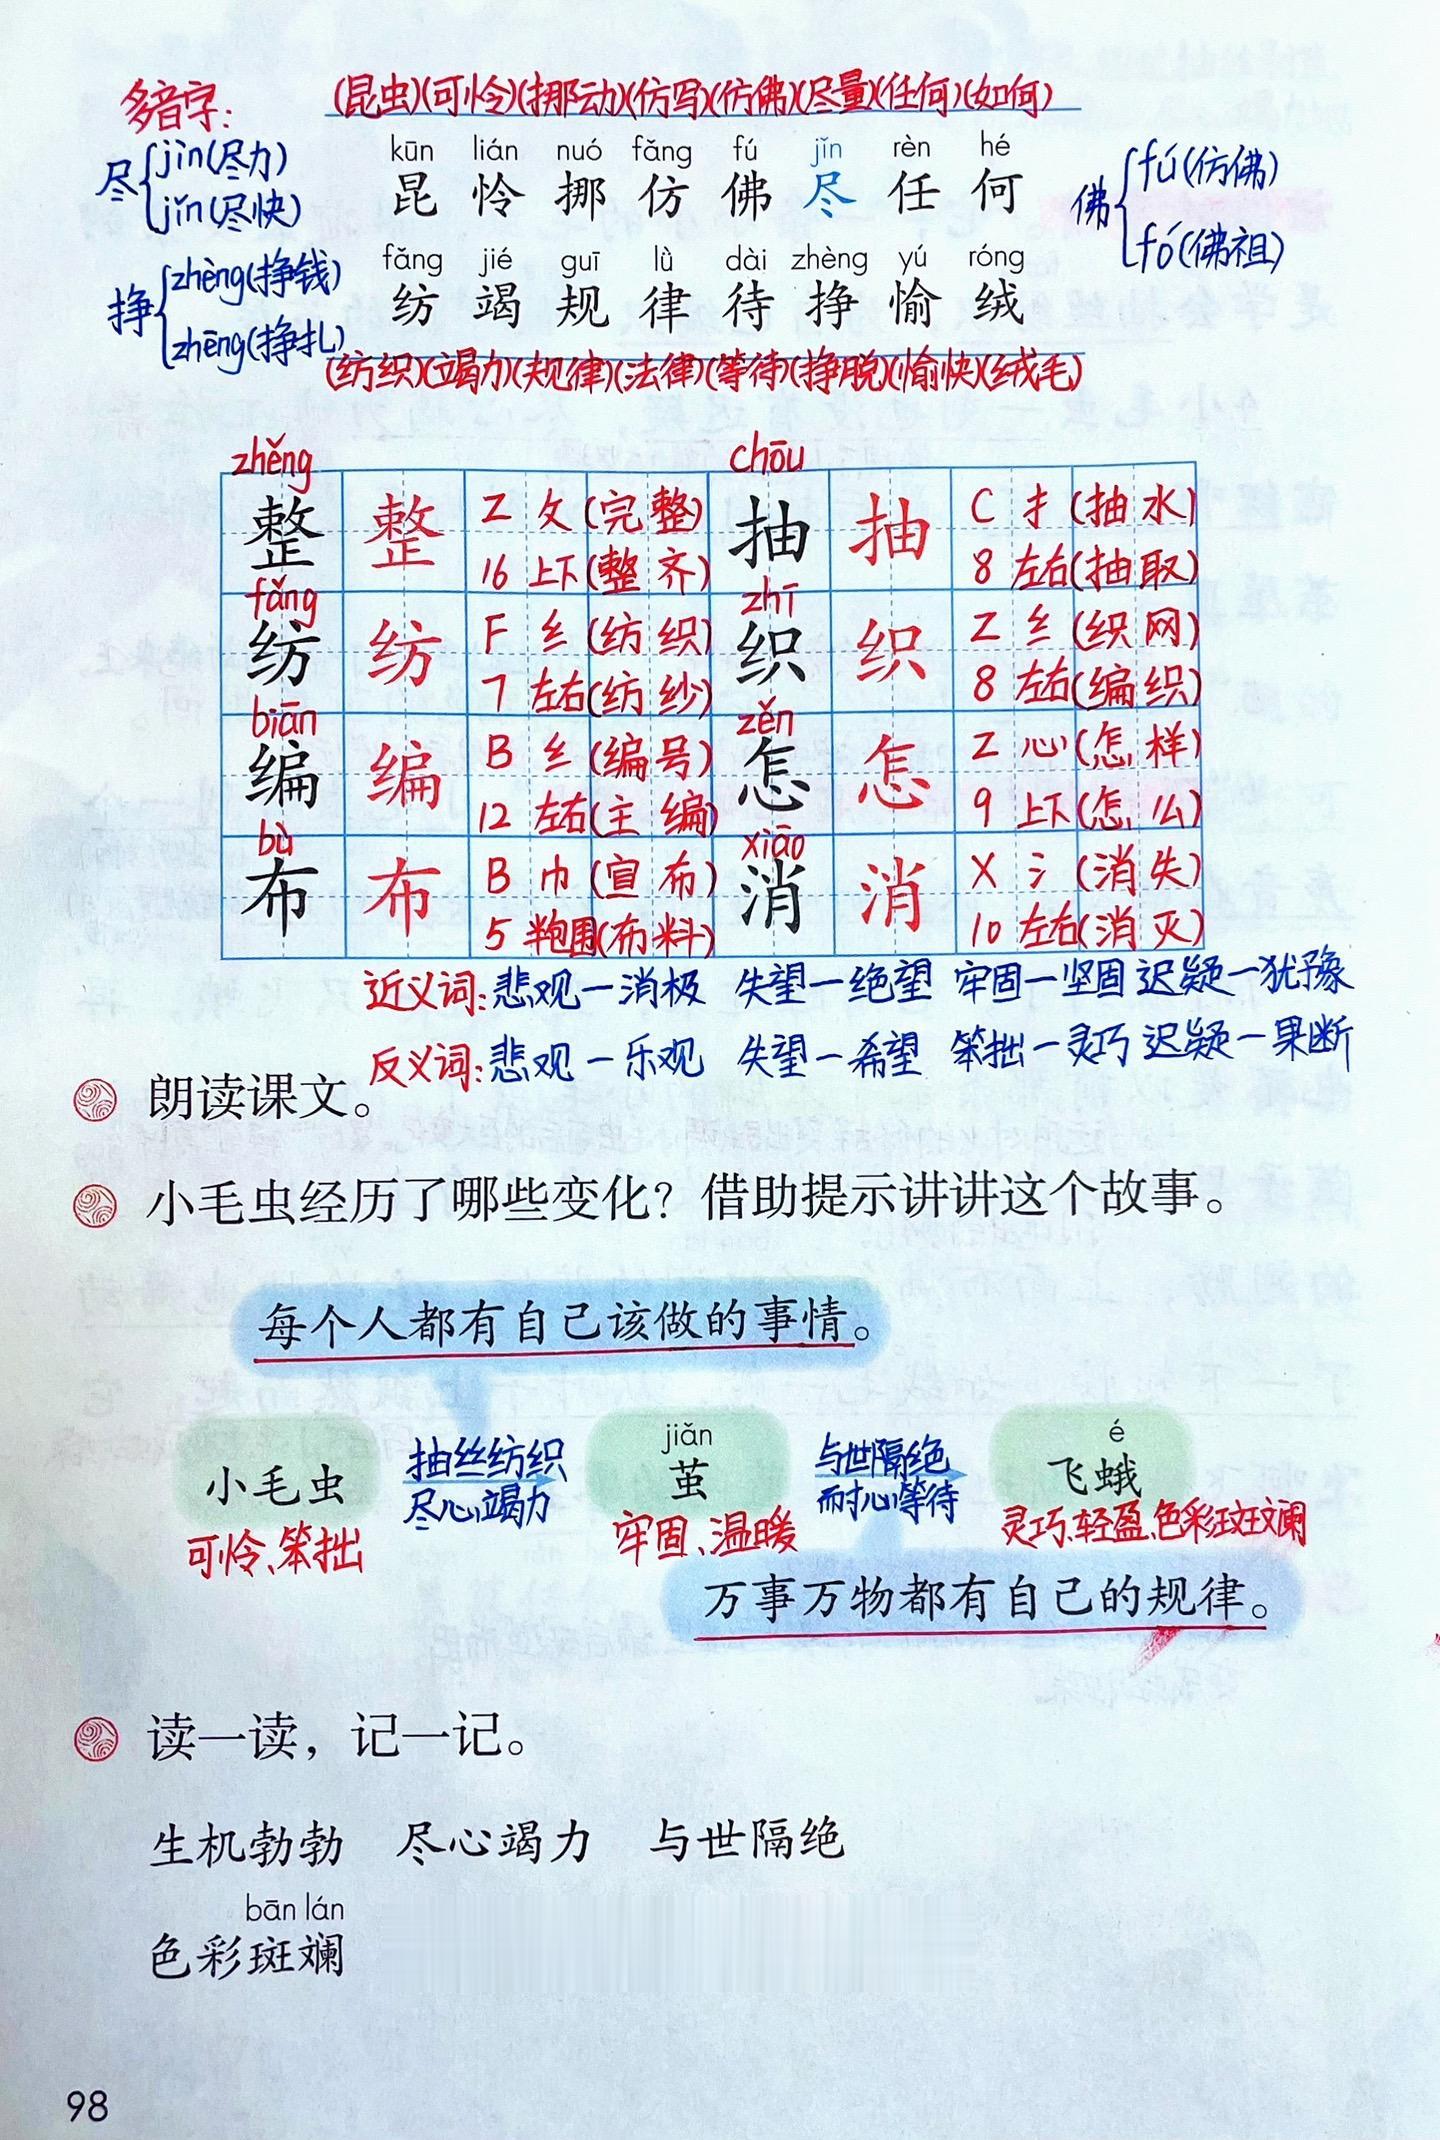 多音字：
(昆虫)(可怜)(挪动)(仿写)(仿佛)(尽量)(任何)(如何)
尽 jìn(尽力)
jǐn(尽快)
kūn lián nuó fǎng fú jǐn rèn hé
昆 怜 挪 仿 佛 尽 任 何
佛 fú(仿佛)
fó(佛祖)
挣 zhèng(挣钱)
zhēng(挣扎)
fǎng jié guī lǜ dài zhèng yú róng
纺 竭 规 律 待 挣 愉 绒
(纺织)(竭力)(规律)(法律)(等待)(挣脱)(愉快)(绒毛)
zhěng chōu
整 整 Z 攵 (完整) 抽 抽 C 扌 (抽水)
16 上下 (整齐) 8 左右 (抽取)
fǎng zhī
纺 纺 F 纟 (纺织) 织 织 Z 纟 (织网)
7 左右 (纺纱) 8 左右 (编织)
biān zěn
编 编 B 纟 (编号) 怎 怎 Z 心 (怎样)
12 左右 (主编) 9 上下 (怎么)
bù xiāo
布 布 B 巾 (宣布) 消 消 X 氵 (消失)
5 半包围 (布料) 10 左右 (消灭)
近义词：悲观—消极 失望—绝望 牢固—坚固 迟疑—犹豫
反义词：悲观—乐观 失望—希望 笨拙—灵巧 迟疑—果断
朗读课文。
小毛虫经历了哪些变化？借助提示讲讲这个故事。
每个人都有自己该做的事情。
jiǎn é
小毛虫 抽丝纺织 茧 与世隔绝 飞蛾
尽心竭力 耐心等待
可怜、笨拙 牢固、温暖 灵巧、轻盈、色彩斑斓
万事万物都有自己的规律。
读一读，记一记。
生机勃勃 尽心竭力 与世隔绝
bān lán
色彩斑斓
98